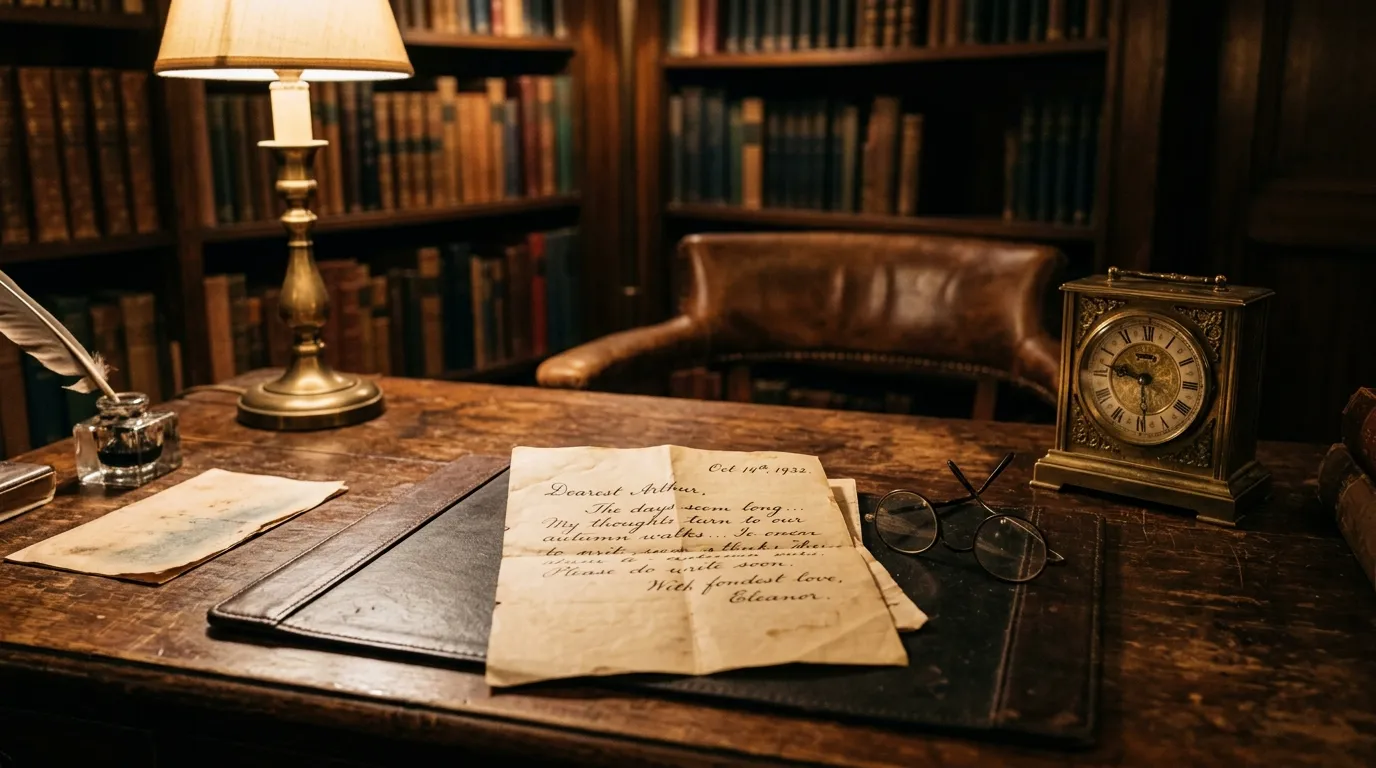 Oct 14th, 1932.
Dearest Arthur,
The days seem long...
My thoughts turn to our
autumn walks...
to write,
Please do write soon.
With fondest love,
Eleanor.
XII